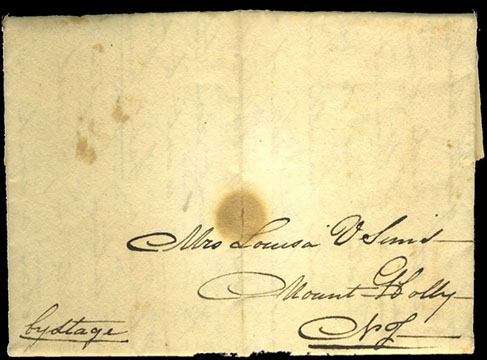 Mrs Louisa V Sims
Mount Holly
NJ
by stage